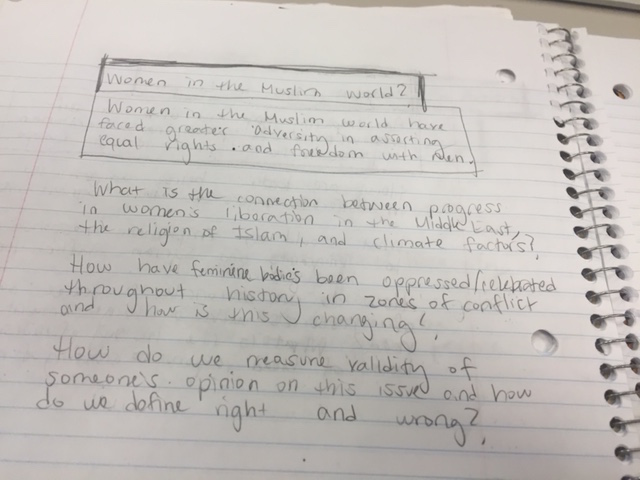 Women in the Muslim world?
Women in the Muslim world have
faced greater adversity in asserting
equal rights and freedom with Men.
What is the connection between progress
in women's liberation in the Middle East,
the religion of Islam, and climate factors?
How have feminine bodies been oppressed/celebrated
throughout history in zones of conflict
and how is this changing?
How do we measure validity of
someone's opinion on this issue and how
do we define right and wrong?